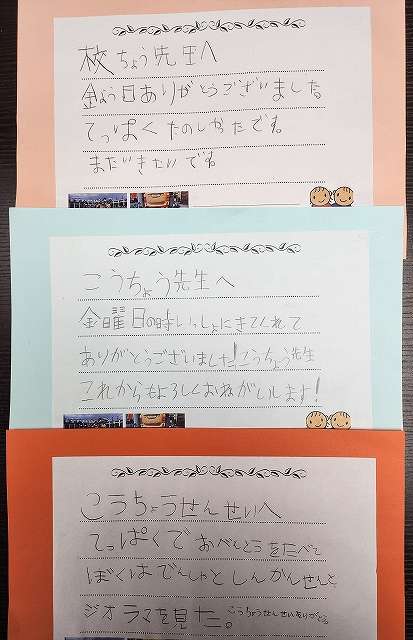 校ちょう先生へ
金よう日ありがとうございました。
てっぱくたのしかたです。
またいきたいです。
こうちょう先生へ
金曜日の時いっしょにきてくれて
ありがとうございました!こうちょう先生
これからもよろしくおねがいします!
こうちょうせんせいへ
てっぱくでおべとうをたべて
ぼくはでんしゃとしんかんせんと
ジオラマを見た。こうちょうせんせいありがとう